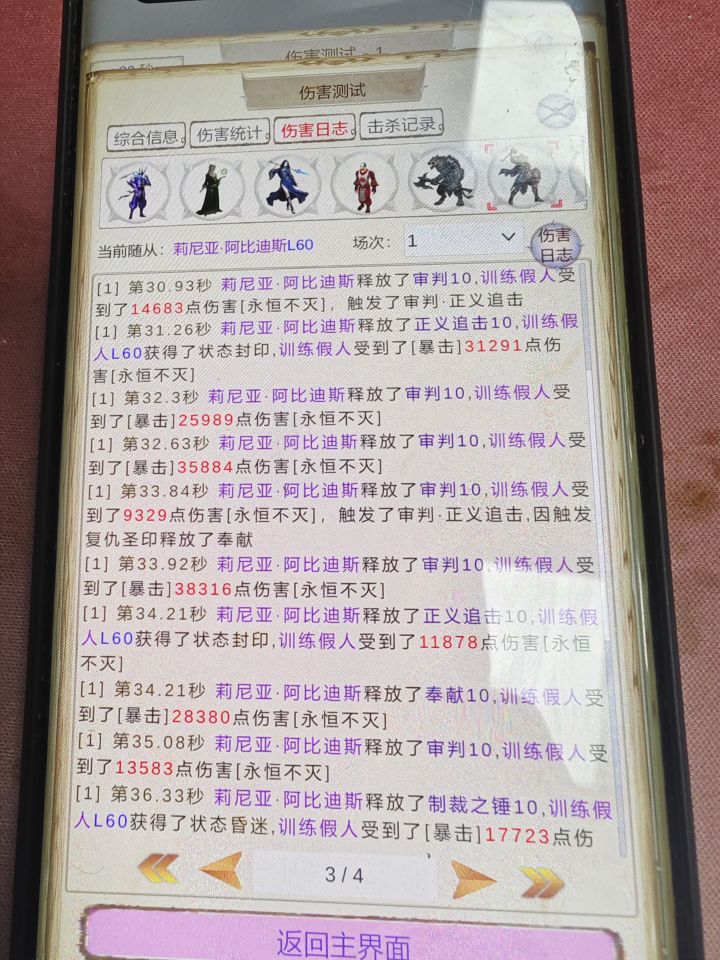 伤害测试 - 1
伤害测试
综合信息 伤害统计 伤害日志 击杀记录
当前随从: 莉尼亚·阿比迪斯L60 场次: 1 伤害
日志
[1] 第30.93秒 莉尼亚·阿比迪斯释放了审判10,训练假人受
到了14683点伤害[永恒不灭]，触发了审判·正义追击
[1] 第31.26秒 莉尼亚·阿比迪斯释放了正义追击10,训练假
人L60获得了状态封印,训练假人受到了[暴击]31291点伤
害[永恒不灭]
[1] 第32.3秒 莉尼亚·阿比迪斯释放了审判10,训练假人受
到了[暴击]25989点伤害[永恒不灭]
[1] 第32.63秒 莉尼亚·阿比迪斯释放了审判10,训练假人受
到了[暴击]35884点伤害[永恒不灭]
[1] 第33.84秒 莉尼亚·阿比迪斯释放了审判10,训练假人受
到了9329点伤害[永恒不灭]，触发了审判·正义追击,因触发
复仇圣印释放了奉献
[1] 第33.92秒 莉尼亚·阿比迪斯释放了审判10,训练假人受
到了[暴击]38316点伤害[永恒不灭]
[1] 第34.21秒 莉尼亚·阿比迪斯释放了正义追击10,训练假
人L60获得了状态封印,训练假人受到了11878点伤害[永恒
不灭]
[1] 第34.21秒 莉尼亚·阿比迪斯释放了奉献10,训练假人受
到了[暴击]28380点伤害[永恒不灭]
[1] 第35.08秒 莉尼亚·阿比迪斯释放了审判10,训练假人受
到了13583点伤害[永恒不灭]
[1] 第36.33秒 莉尼亚·阿比迪斯释放了制裁之锤10,训练假
人L60获得了状态昏迷,训练假人受到了[暴击]17723点伤
3 / 4
返回主界面